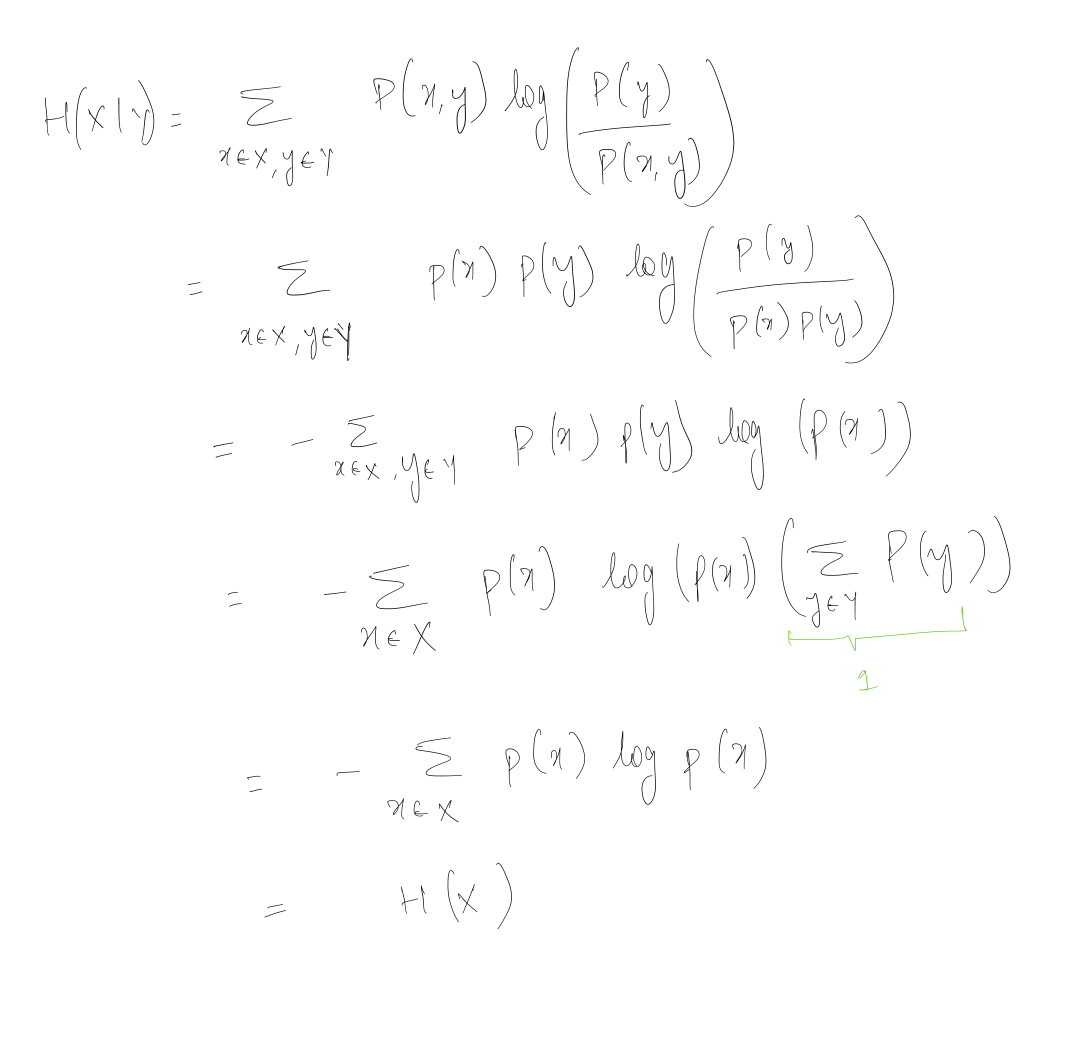 H(X|Y) = Σ_{x∈X, y∈Y} P(x,y) log(P(y)/P(x,y))
= Σ_{x∈X, y∈Y} p(x) p(y) log(p(y)/(p(x) p(y)))
= - Σ_{x∈X, y∈Y} p(x) p(y) log (p(x))
= - Σ_{x∈X} p(x) log (p(x)) (Σ_{y∈Y} P(y))
1
= - Σ_{x∈X} p(x) log p(x)
= H(X)